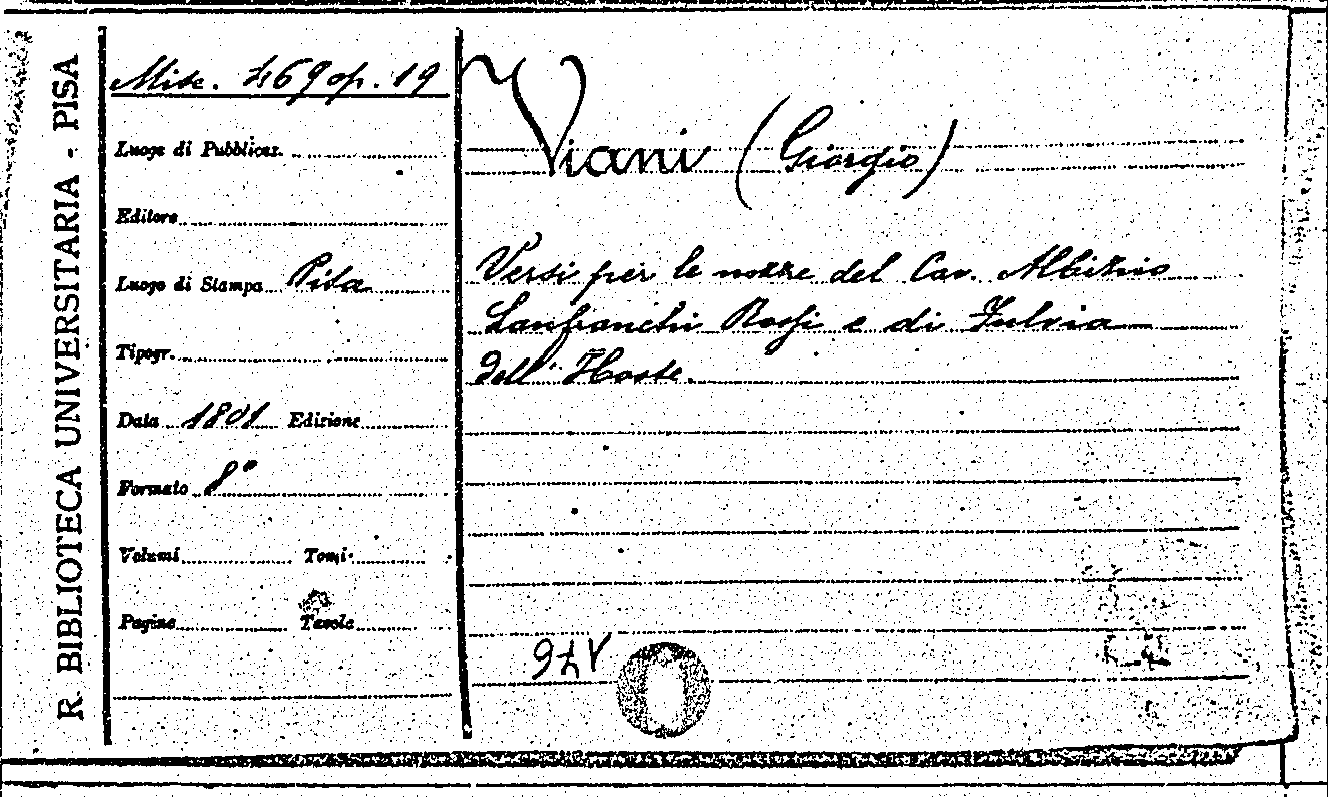 R. BIBLIOTECA UNIVERSITARIA - PISA
Misc. 469 op. 19
Luogo di Pubblicaz.
Editore
Luogo di Stampa Pisa
Tipogr.
Data 1801 Edizione
Formato 8°
Volumi Tomi
Pagine Tavole
Viani (Giorgio)
Versi per le nozze del Cav. Albizzio
Lanfranchi Rossi e di Fulvia
dell' Hoste.